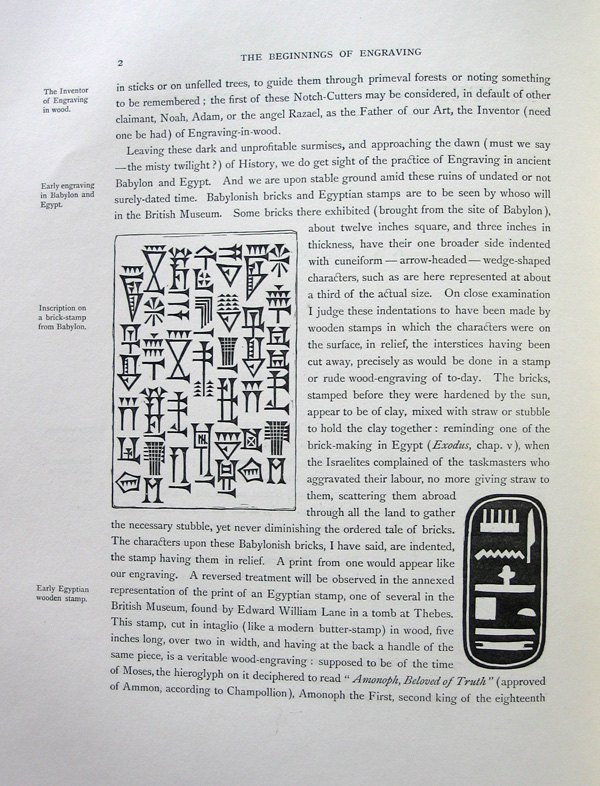 2
THE BEGINNINGS OF ENGRAVING
The Inventor
of Engraving
in wood.
in sticks or on unfelled trees, to guide them through primeval forests or noting something
to be remembered ; the first of these Notch-Cutters may be considered, in default of other
claimant, Noah, Adam, or the angel Razael, as the Father of our Art, the Inventor (need
one be had) of Engraving-in-wood.
Leaving these dark and unprofitable surmises, and approaching the dawn (must we say
—the misty twilight ?) of History, we do get sight of the practice of Engraving in ancient
Early engraving
in Babylon and
Egypt.
Babylon and Egypt. And we are upon stable ground amid these ruins of undated or not
surely-dated time. Babylonish bricks and Egyptian stamps are to be seen by whoso will
in the British Museum. Some bricks there exhibited (brought from the site of Babylon),
about twelve inches square, and three inches in
thickness, have their one broader side indented
with cuneiform — arrow-headed — wedge-shaped
characters, such as are here represented at about
a third of the actual size. On close examination
Inscription on
a brick-stamp
from Babylon.
I judge these indentations to have been made by
wooden stamps in which the characters were on
the surface, in relief, the interstices having been
cut away, precisely as would be done in a stamp
or rude wood-engraving of to-day. The bricks,
stamped before they were hardened by the sun,
appear to be of clay, mixed with straw or stubble
to hold the clay together : reminding one of the
brick-making in Egypt (Exodus, chap. v), when
the Israelites complained of the taskmasters who
aggravated their labour, no more giving straw to
them, scattering them abroad
through all the land to gather
the necessary stubble, yet never diminishing the ordered tale of bricks.
The characters upon these Babylonish bricks, I have said, are indented,
the stamp having them in relief. A print from one would appear like
our engraving. A reversed treatment will be observed in the annexed
Early Egyptian
wooden stamp.
representation of the print of an Egyptian stamp, one of several in the
British Museum, found by Edward William Lane in a tomb at Thebes.
This stamp, cut in intaglio (like a modern butter-stamp) in wood, five
inches long, over two in width, and having at the back a handle of the
same piece, is a veritable wood-engraving : supposed to be of the time
of Moses, the hieroglyph on it deciphered to read " Amonoph, Beloved of Truth " (approved
of Ammon, according to Champollion), Amonoph the First, second king of the eighteenth